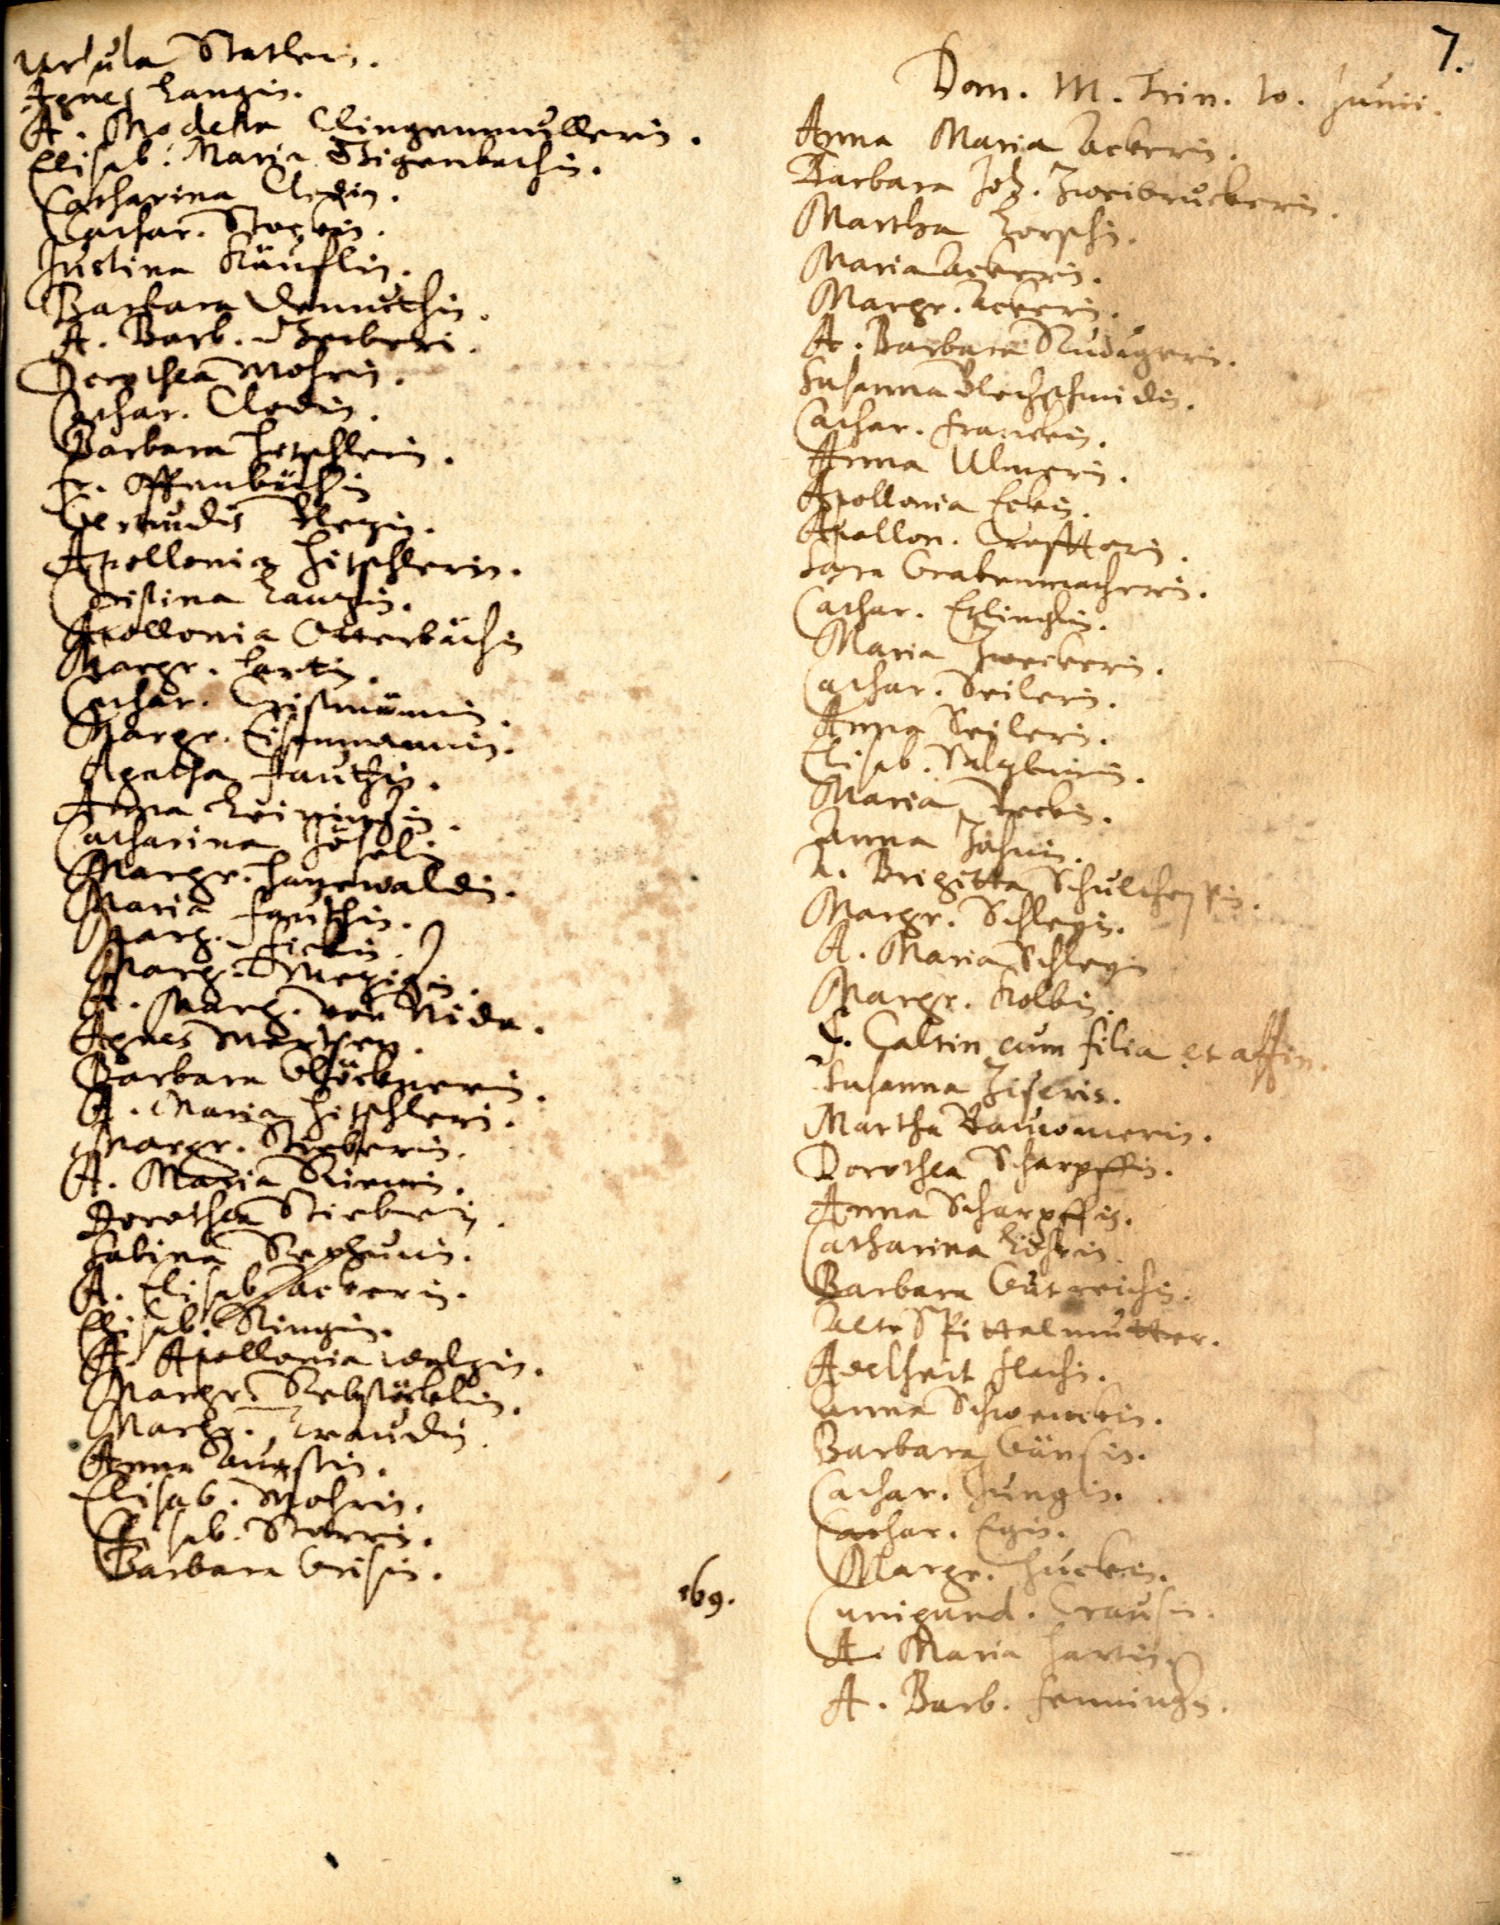 Ursula Statleri.
Agnes Langin.
A. Modesta Clingenmullerin.
Elisab. Maria Bigenbachin.
Catharina Clodin.
Cathar. Stockin.
Justina Käuflin.
Barbara Demuthin.
A. Barb. Gerberi.
Dorothea Mohrin.
Cathar. Clodin.
Barbara Hetschlerin.
Fr. Offenbächin
Gertrudis
Apollonia Hitschlerin.
Cristina Langin.
Apollonia Otterbächin
Margr. Hartin.
Cathar. Cristmännin.
Margr. Eisenmannin.
Agatha Fauthin.
Anna Leiningerin.
Catharina
Margr. Hagewaldin.
Maria Fauthin.
Marg. Fickin.
Marg. Metzigin.
A. Marg. von Nida.
Agnes Merthen.
Barbara Glöcknerin.
A. Maria Hitschleri.
Margr. Stieberin.
A. Maria Riemin.
Dorothea Stieberin.
Sabina Stephanin.
A. Elisab. Ackerin.
Elisab. Ringin.
A. Apollonia Welzin.
Margr. Rebstöckelin.
Margr. Traudin.
Anna Augstin.
Elisab. Mohrin.
Elisab. Storrin.
Barbara Grisin.
169.
7.
Dom. III. Trin. 10. Junii.
Anna Maria Ackerin.
Barbara Joh. Zweibruckerin.
Martha Lorschin.
Maria Ackerin.
Margr. Ackerin.
A. Barbara Rudigerin.
Susanna Blechschmidin.
Cathar. Franckin.
Anna Ulmerin.
Apollonia Eckin.
Apollon. Crafftterin.
Sara Grabenmacherin.
Cathar. Etlinchin.
Maria Zweckerin.
Cathar. Seilerin.
Anna Seilerin.
Elisab. Saltzbrunin.
Maria Beckin.
Anna Jahnin.
A. Brigitta
Margr. Schlegin.
A. Maria Schlegin
Margr. Kolbin.
F. Caltin cum filia et affin.
Susanna Ziserin.
Martha Bauwomerin.
Dorothea Scharpffin.
Anna Scharpffin.
Catharina
Barbara Gutreichin.
Alte Spittelmutter.
Adelheit Flachi.
Anna Schwenckin.
Barbara Gänsin.
Cathar. Jungin.
Cathar. Egin.
Margr. Huckin.
Cunigund. Crausin.
A. Maria Hartin.
A. Barb. Henningin.